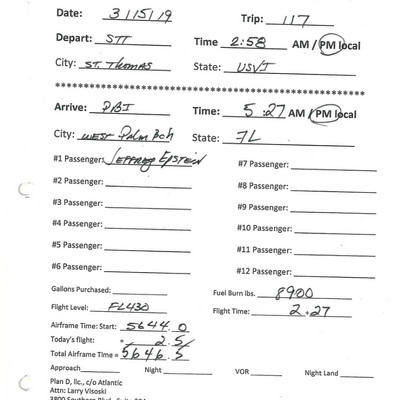 Date: 3/15/19 Trip: 117
Depart: STT Time 2:58 AM / PM local
City: ST. THOMAS State: USVI
********************************************************
Arrive: PBI Time: 5:27 AM / PM local
City: WEST Palm Bch State: FL
#1 Passenger: JEFFREY EPSTEIN #7 Passenger:
#2 Passenger: #8 Passenger:
#3 Passenger: #9 Passenger:
#4 Passenger: #10 Passenger:
#5 Passenger: #11 Passenger:
#6 Passenger: #12 Passenger:
Gallons Purchased: Fuel Burn lbs. 8900
Flight Level: FL430 Flight Time: 2+27
Airframe Time: Start: 5644.0
Today's flight: + 2.5
Total Airframe Time = 5646.5
Approach Night VOR Night Land
Plan D, llc., c/o Atlantic
Attn: Larry Visoski
3800 Southern Blvd. Suite